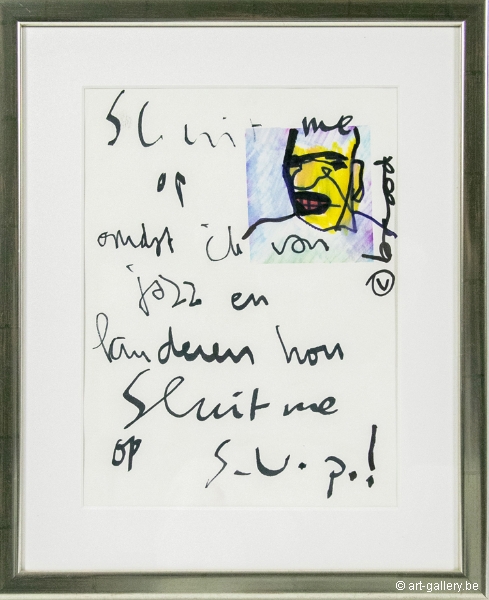 Sluit me
op
omdat ik van
jazz en
landeren hou
Sluit me
op S.V.P.!
© brood
© art-gallery.be